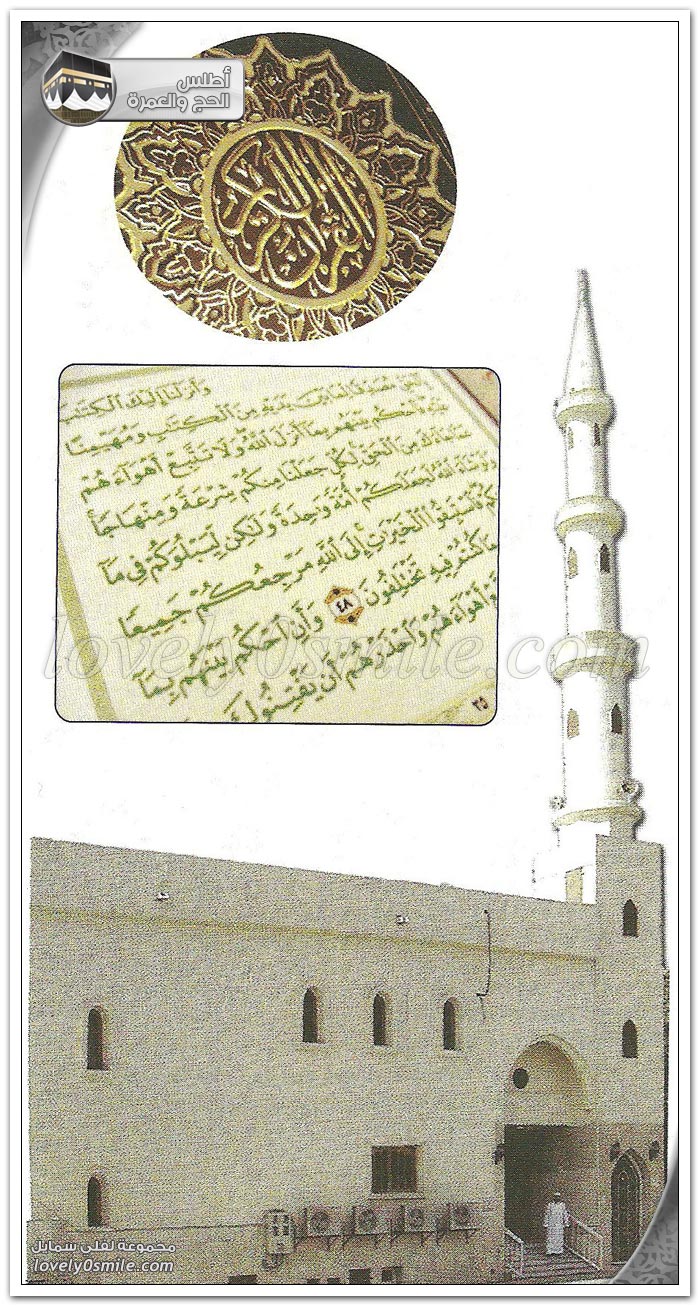 أطلس
الحج والعمرة
القرآن الكريم
وَأَنزَلْنَا إِلَيْكَ الْكِتَابَ
مِنَ الْكِتَابِ وَمُهَيْمِنًا
فَاحْكُم بَيْنَهُم بِمَا أَنزَلَ اللَّهُ وَلَا تَتَّبِعْ أَهْوَاءَهُمْ
مِنَ الْحَقِّ لِكُلٍّ جَعَلْنَا مِنكُمْ شِرْعَةً وَمِنْهَاجًا
لَجَعَلَكُمْ أُمَّةً وَاحِدَةً وَلَٰكِن لِّيَبْلُوَكُمْ فِي مَا
الْخَيْرَاتِ إِلَى اللَّهِ مَرْجِعُكُمْ جَمِيعًا
كُنتُمْ فِيهِ تَخْتَلِفُونَ ٤٨ وَأَنِ احْكُم بَيْنَهُم بِمَا
أَهْوَاءَهُمْ وَاحْذَرْهُمْ أَن يَفْتِنُوكَ
lovely0smile.com
مجموعة لفلي سمايل
lovely0smile.com